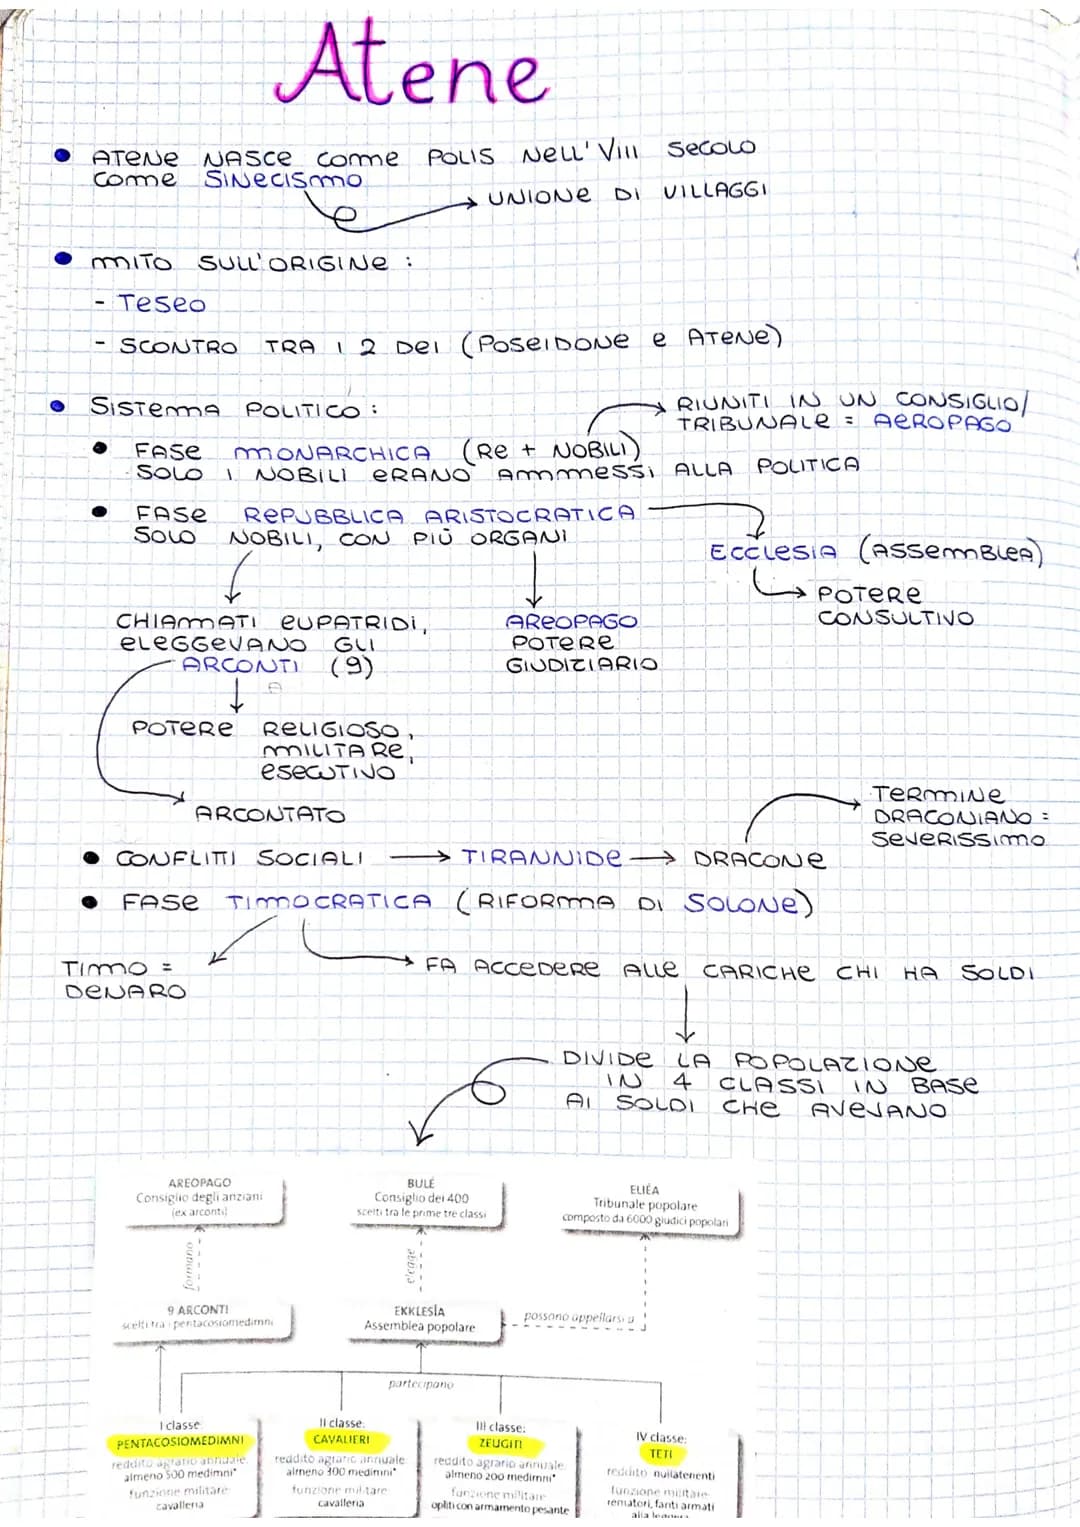 Atene
ATENE NASCE COME POLIS NELL'VIII SECOLO
COME SINECISMO
UNIONE DI VILLAGGI
MITO SULL'ORIGINE :
- TESEO
- SCONTRO TRA I 2 DEI (POSEIDONE E ATENE)
SISTEMA POLITICO :
RIUNITI IN UN CONSIGLIO/
TRIBUNALE = AEROPAGO
FASE MONARCHICA (RE + NOBILI)
SOLO I NOBILI ERANO AMMESSI ALLA POLITICA
FASE REPUBBLICA ARISTOCRATICA
SOLO NOBILI, CON PIÙ ORGANI
ECCLESIA (ASSEMBLEA)
POTERE
CONSULTIVO
CHIAMATI EUPATRIDI,
ELEGGEVANO GLI
ARCONTI (9)
AREOPAGO
POTERE
GIUDIZIARIO
POTERE RELIGIOSO,
MILITARE,
ESECUTIVO
ARCONTATO
TERMINE
DRACONIANO =
SEVERISSIMO
CONFLITTI SOCIALI → TIRANNIDE → DRACONE
FASE TIMOCRATICA (RIFORMA DI SOLONE)
TIMO =
DENARO
FA ACCEDERE ALLE CARICHE CHI HA SOLDI
DIVIDE LA POPOLAZIONE
IN 4 CLASSI IN BASE
AI SOLDI CHE AVEVANO
AREOPAGO
Consiglio degli anziani
(ex arconti)
BULÉ
Consiglio dei 400
scelti tra le prime tre classi
ELIÉA
Tribunale popolare
composto da 6000 giudici popolari
formano
elegge
9 ARCONTI
scelti tra i pentacosiomedimni
EKKLESÍA
Assemblea popolare
possono appellarsi a
partecipano
I classe:
PENTACOSIOMEDIMNI
reddito agrario annuale:
almeno 500 medimni*
funzione militare:
cavalleria
II classe:
CAVALIERI
reddito agrario annuale:
almeno 300 medimni*
funzione militare:
cavalleria
III classe:
ZEUGITI
reddito agrario annuale:
almeno 200 medimni*
funzione militare:
opliti con armamento pesante
IV classe:
TETI
reddito: nullatenenti
funzione militare:
rematori, fanti armati
alla leggera